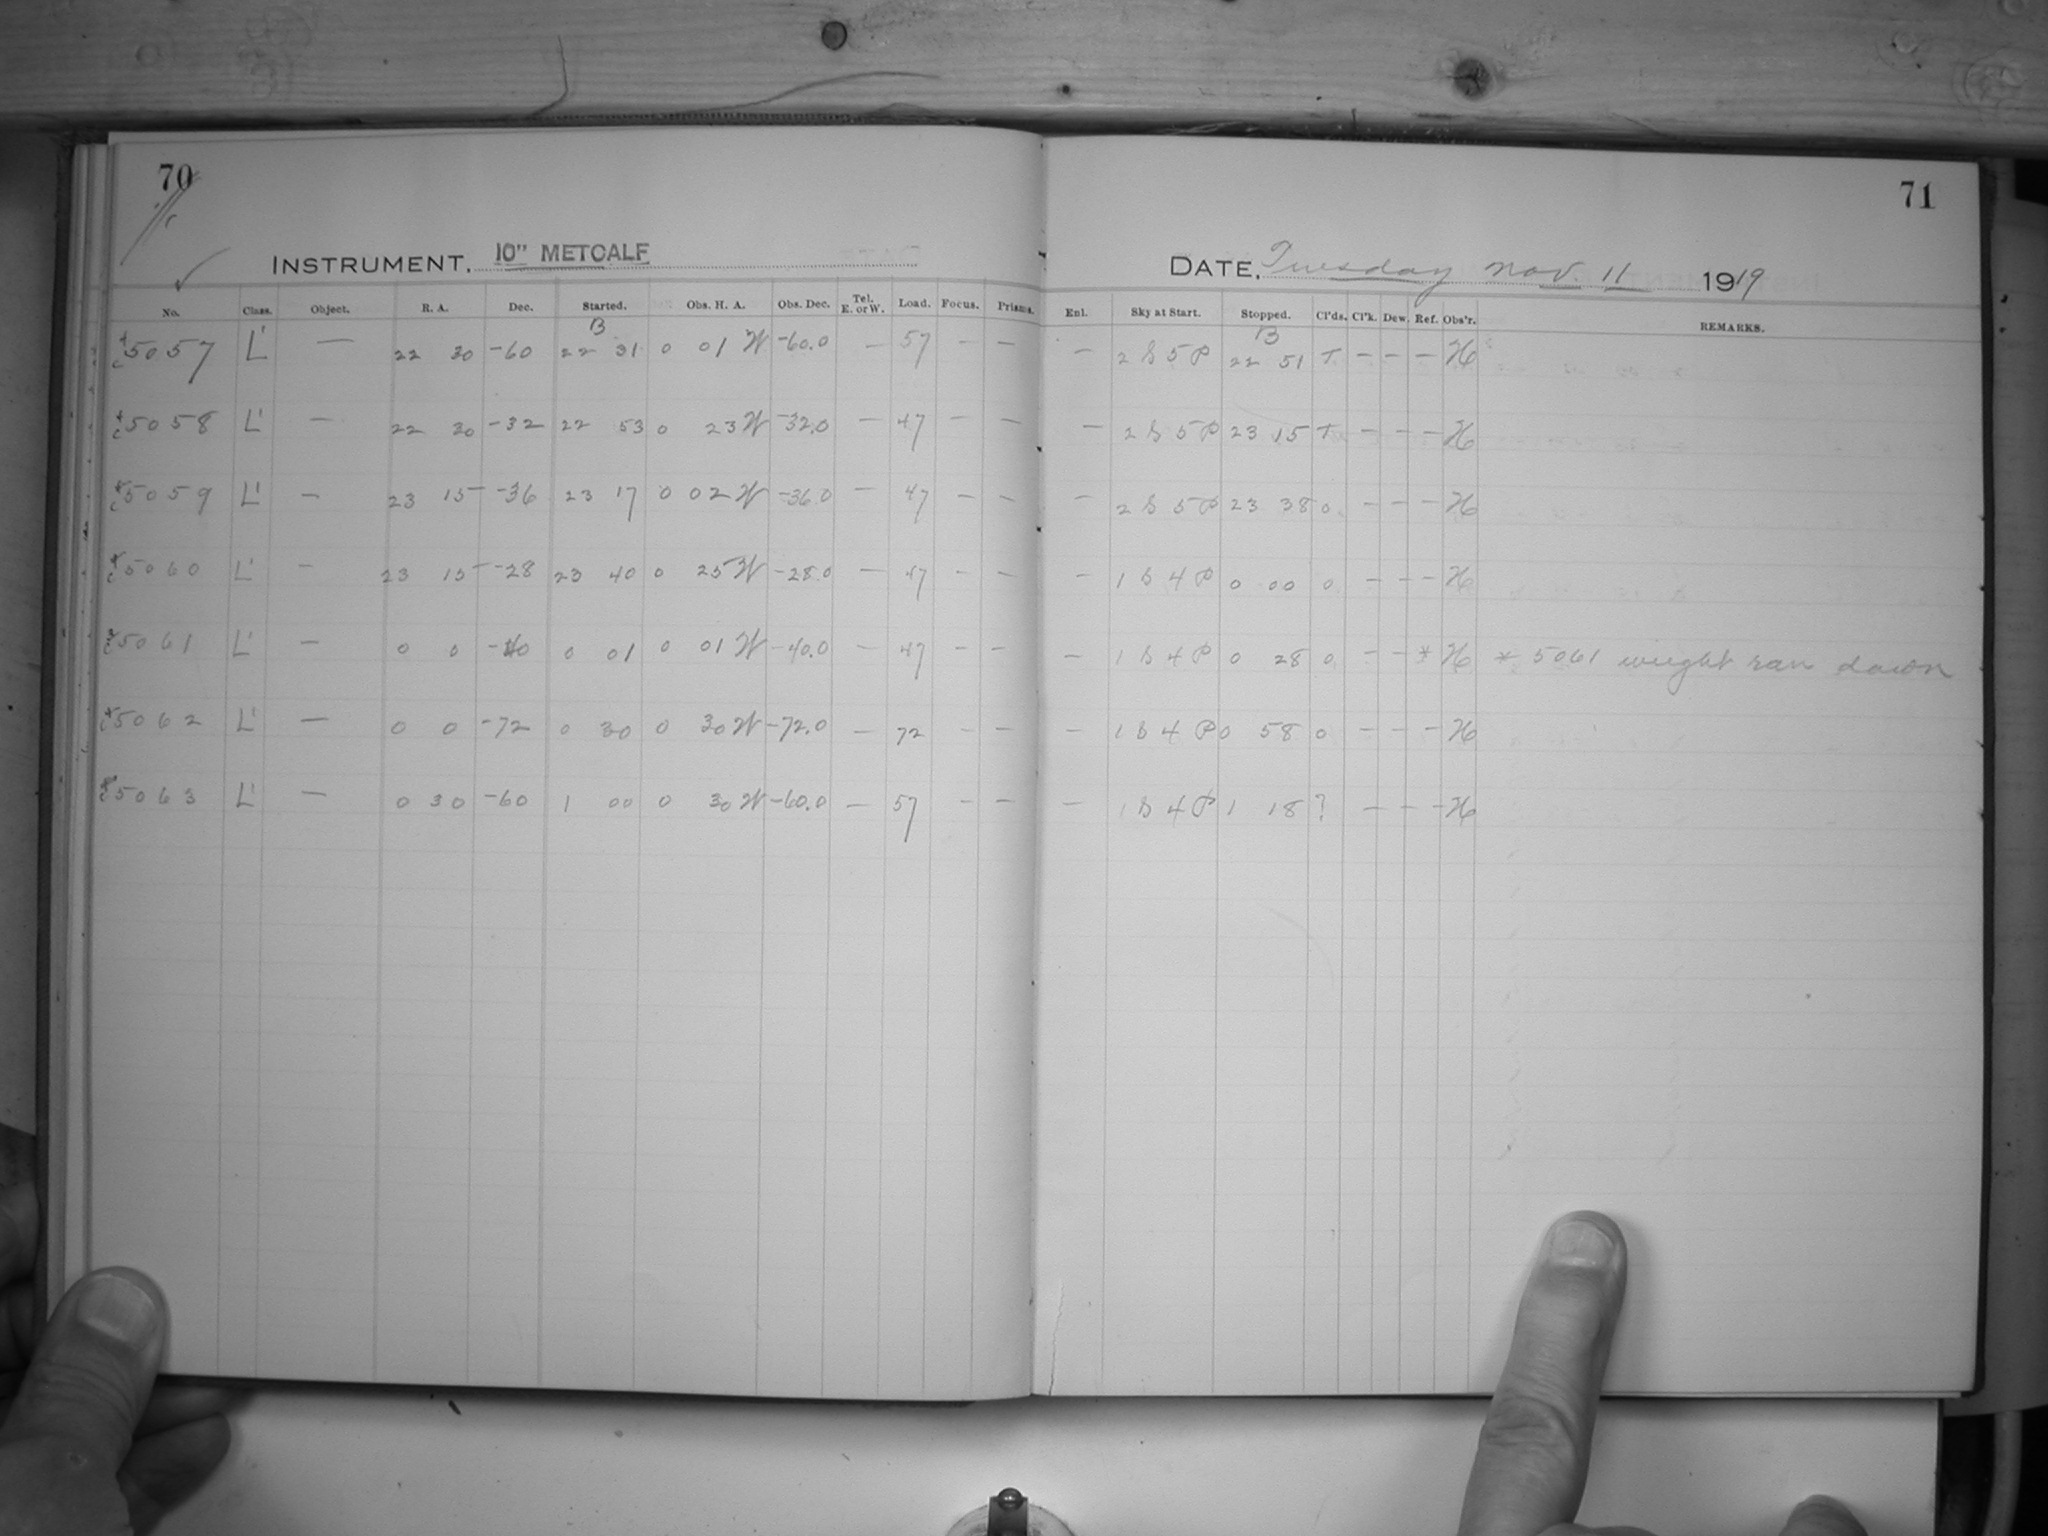 70
71
INSTRUMENT. 10" METCALF
DATE. Tuesday Nov. 11 1919
No. Class. Object. R. A. Dec. Started. Obs. H. A. Obs. Dec. Tel. E. or W. Load. Focus. Prisms. Enl. Sky at Start. Stopped. Cl'ds. Cl'k. Dew. Ref. Obs'r. REMARKS.
B B
5057 L' — 22 30 -60 22 31 0 01 W -60.0 — 57 — — — 2 S 5 P 22 51 T — — — H
5058 L' — 22 30 -32 22 53 0 23 W -32.0 — 47 — — — 2 S 5 P 23 15 T — — — H
5059 L' — 23 15 -36 23 17 0 02 W -36.0 — 47 — — — 2 S 5 P 23 38 0 — — — H
5060 L' — 23 15 -28 23 40 0 25 W -28.0 — 47 — — — 1 S 4 P 0 00 0 — — — H
5061 L' — 0 0 -40 0 01 0 01 W -40.0 — 47 — — — 1 S 4 P 0 28 0 — — * H * 5061 weight ran down
5062 L' — 0 0 -72 0 30 0 30 W -72.0 — 72 — — — 1 S 4 P 0 58 0 — — — H
5063 L' — 0 30 -60 1 00 0 30 W -60.0 — 57 — — — 1 S 4 P 1 18 ? — — — H